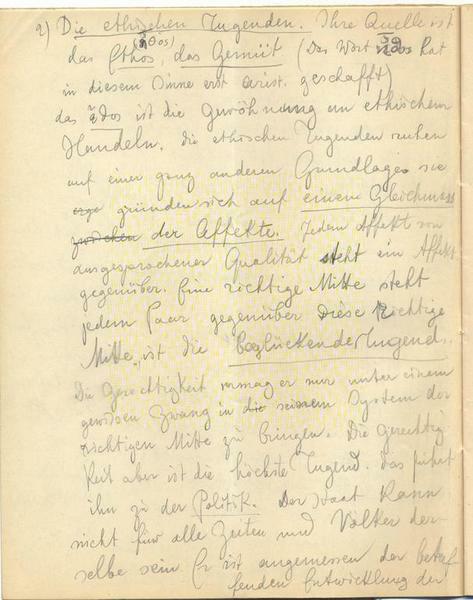 2) Die ethischen Tugenden. Ihre Quelle ist
(ἦθος)
das Ethos, das Gemüt (Das Wort hat
in diesem Sinne erst arist. geschafft)
das ist die Gewöhnung an ethischem
Handeln. Die ethischen Tugenden ruhen
auf einer ganz anderen Grundlage; sie
gründen sich auf einem Gleichmass
zwischen der Affekte. Jedem Affekt von
ausgesprochener Qualität steht ein Affekt
gegenüber. Eine richtige Mitte steht
jedem Paar gegenüber diese richtige
Mitte, ist die beglückende Tugend.
Die Gerechtigkeit vermag er nur unter einem
gewissen Zwang in die seinem System der
richtigen Mitte zu bringen. Die Gerechtig
keit aber ist die höchste Tugend. Das führt
ihn zu der Politik. Der Staat kann
nicht für alle Zeiten und Völker der-
selbe sein Er ist angemessen der betref
fenden Entwicklung der